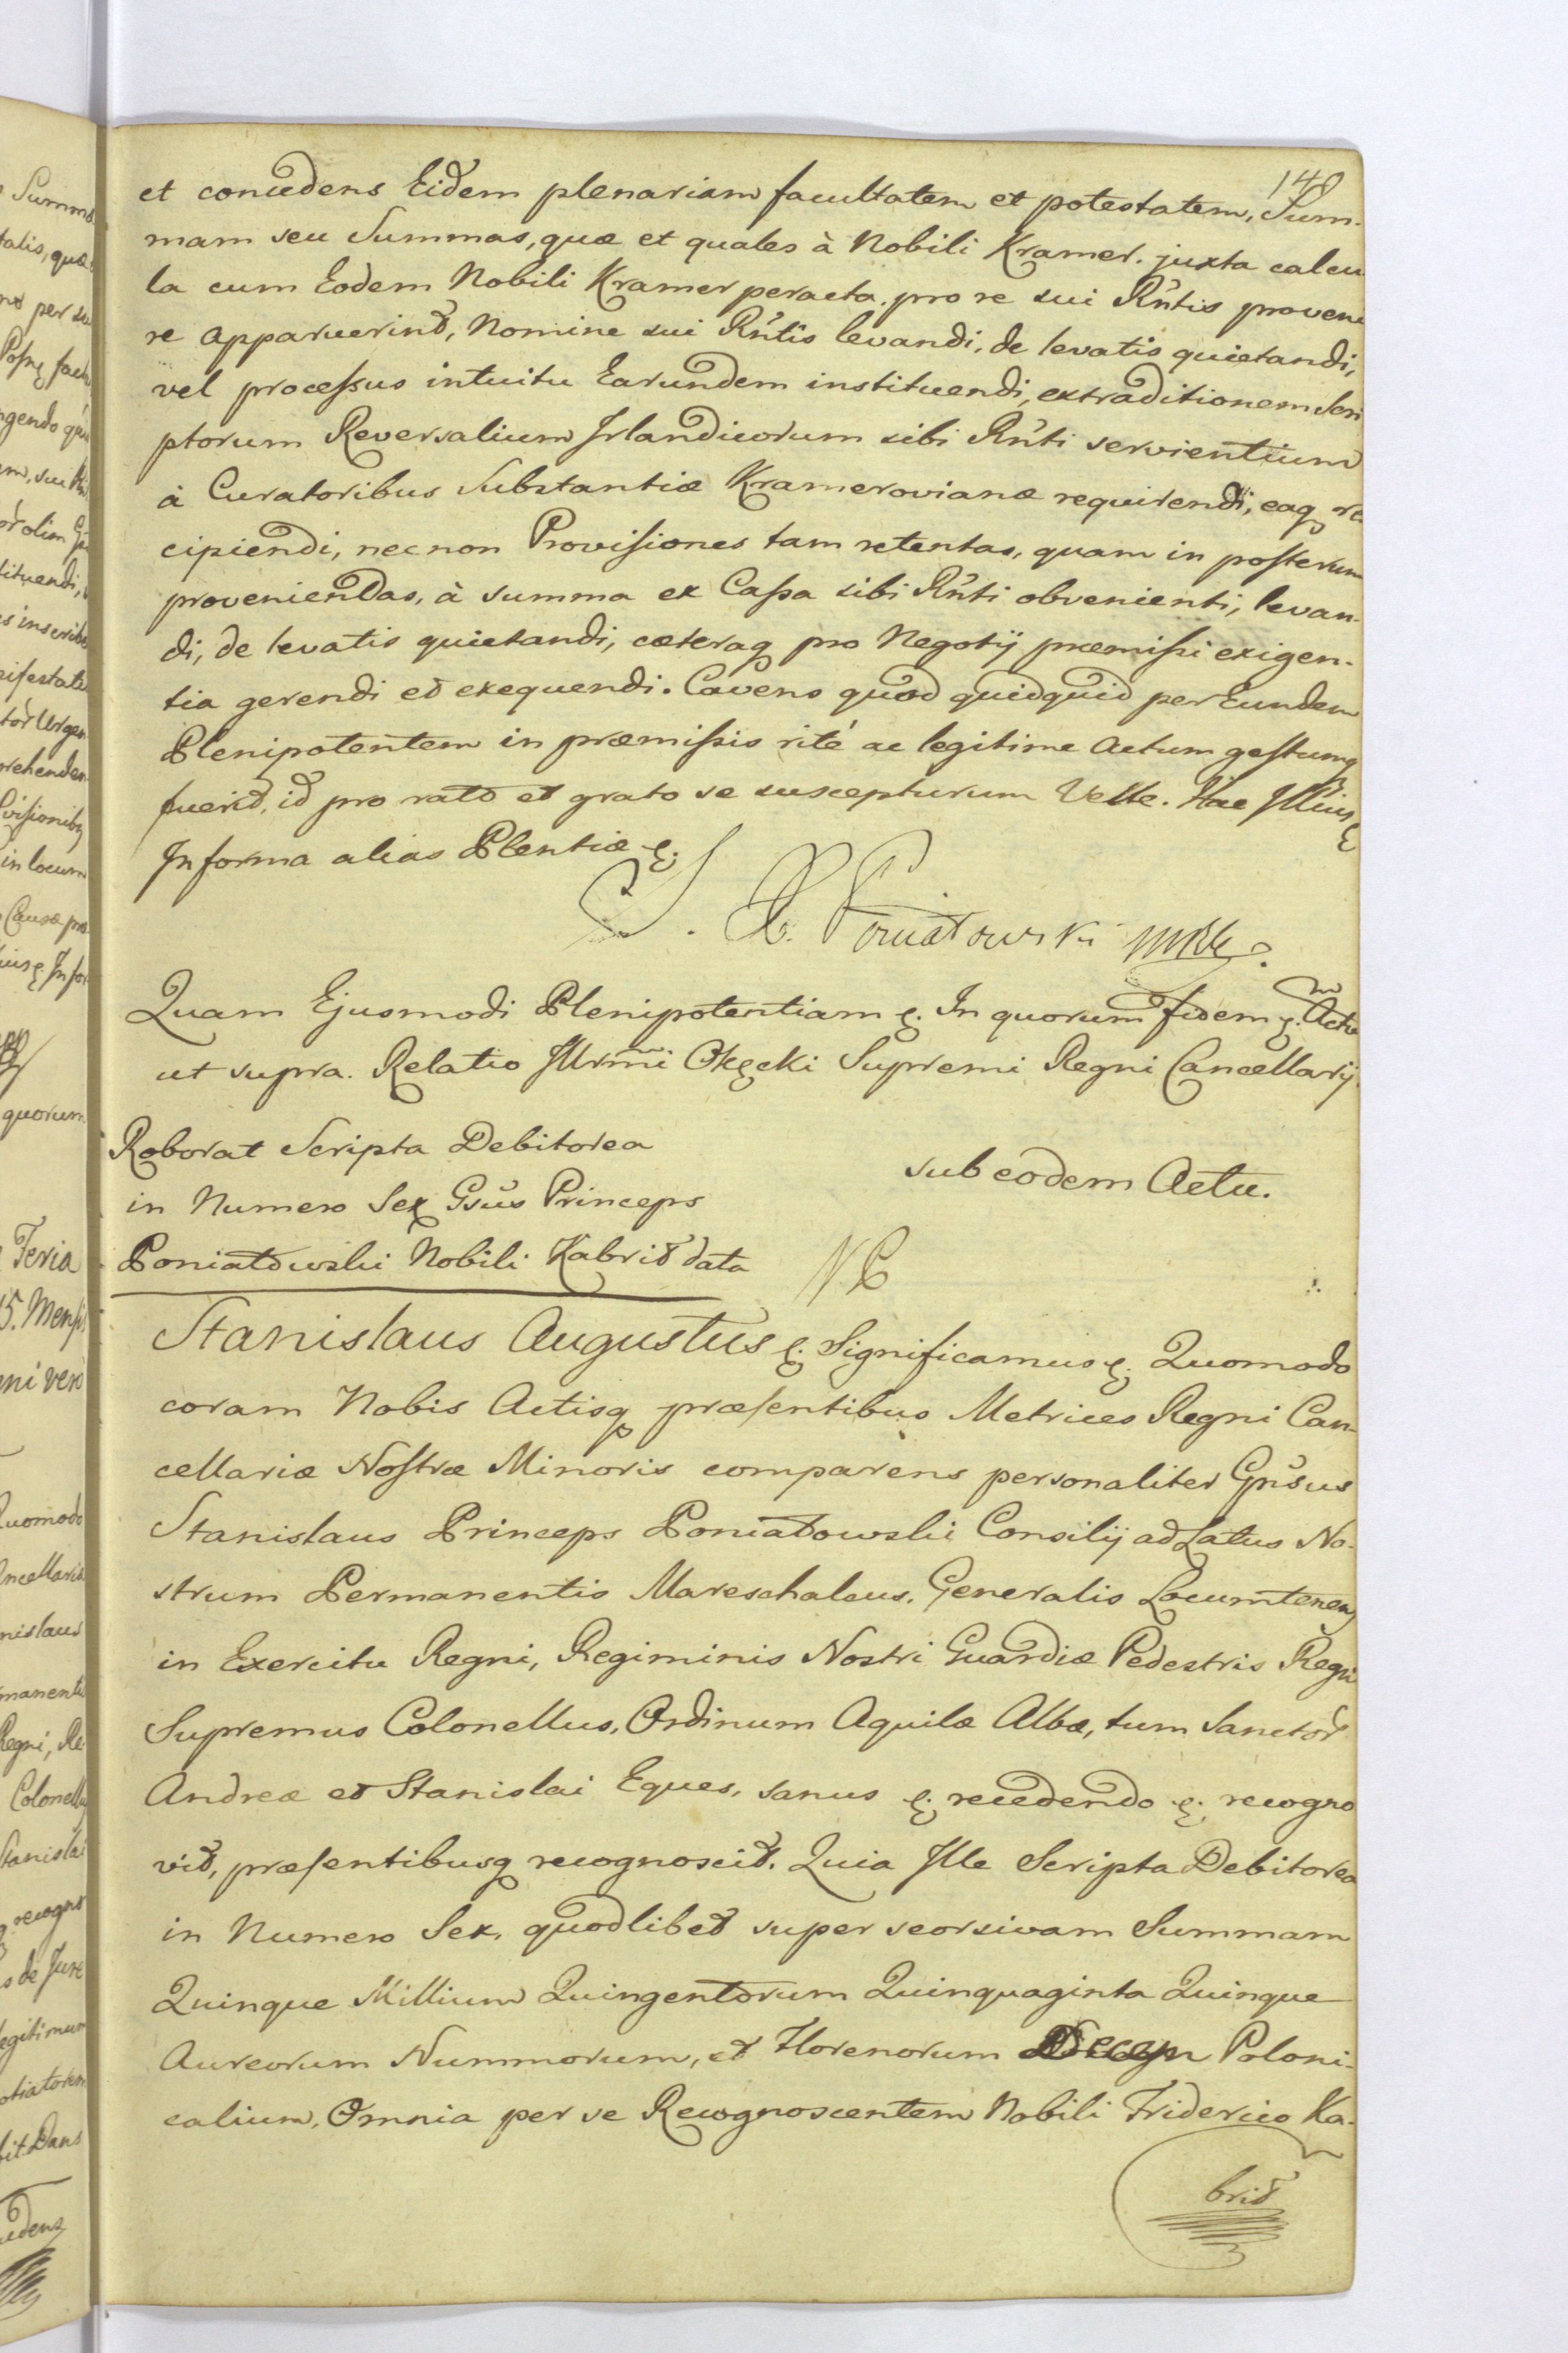 140
et concedens Eidem plenariam facultatem et potestatem, Sum-
mam seu Summas, quæ et quales à Nobili Kramer. juxta calcu
la cum Eodem Nobili Kramer peracta. pro re sui Rñtis proveni
re apparuerint, Nomine sui Rñtis levandi, de levatis quietandi,
vel processus intuitu Earundem instituendi, extraditionem Scri
ptorum Reversalium Irlandicorum sibi Rñti servientium
à Curatoribus Substantiæ Kramerovianæ requirendi, eaq re
cipiendi, nec non Provisiones tam retentas, quam in posterum
proveniendas, à summa ex Cassa sibi Rñti obvenienti, levan-
di, de levatis quietandi, cæteraq pro Negotij præmissi exigen-
tia gerendi et exequendi. Cavens quod quidquid per Eundem
Plenipotentem in præmissis rité ac legitime Actum gestumq
fuerit, id pro rato et grato se suscepturum Velle. Hac Illius
In forma alias Plentiæ
S. X. Poniatowski mpp
Quam Ejusmodi Plenipotentiam In quorum fidem Actu
ut supra. Relatio Illrmi Okęcki Supremi Regni Cancellarij
Roborat Scripta Debitorea
in Numero Sex Gsũs Princeps
Poniatowski Nobili Kabrit data
sub eodem Actu.
Stanislaus Augustus Significamus Quomodo
coram Nobis Actisq præsentibus Metrices Regni Can-
cellariæ Nostræ Minoris comparens personaliter Gnsus
Stanislaus Princeps Poniatowski Consilij ad Latus No-
strum Permanentis Mareschalcus, Generalis Locumtenens
in Exercitu Regni, Regiminis Nostri Guardiæ Pedestris Regni
Supremus Colonellus, Ordinum Aquilæ Albæ, tum Sanctor
Andreæ et Stanislai Eques, sanus recedendo recogno
vit, præsentibusq recognoscit. Quia Ille Scripta Debitorea
in Numero Sex, quodlibet super seorsivam Summam
Quinque Millium Quingentorum Quinquaginta Quinque
Aureorum Nummorum, et Florenorum Decem Poloni-
calium, Omnia per se Recognoscentem Nobili Friderico Ka-
brit